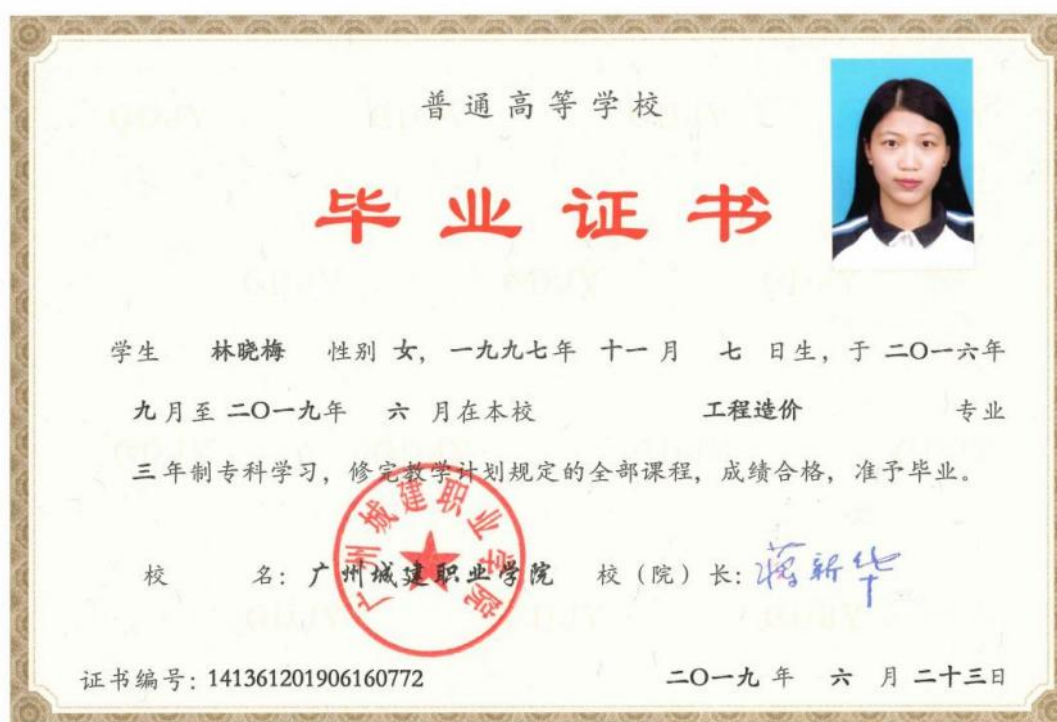 普通高等学校
毕业证书
学生 林晓梅 性别 女，一九九七年 十一 月 七 日生，于 二〇一六年
九月至二〇一九年 六 月在本校 工程造价 专业
三年制专科学习，修完教学计划规定的全部课程，成绩合格，准予毕业。
广州城建职业学院
校 名：广州城建职业学院 校（院）长：蒋新华
证书编号：141361201906160772 二〇一九 年 六 月 二十三日